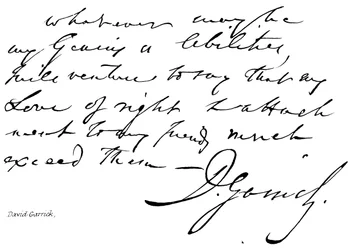 whatever may be
my Genius or Abilities,
I will venture to say that my
Love of right & attach
ment to my friends much
exceed them —
D. Garrick.
David Garrick.